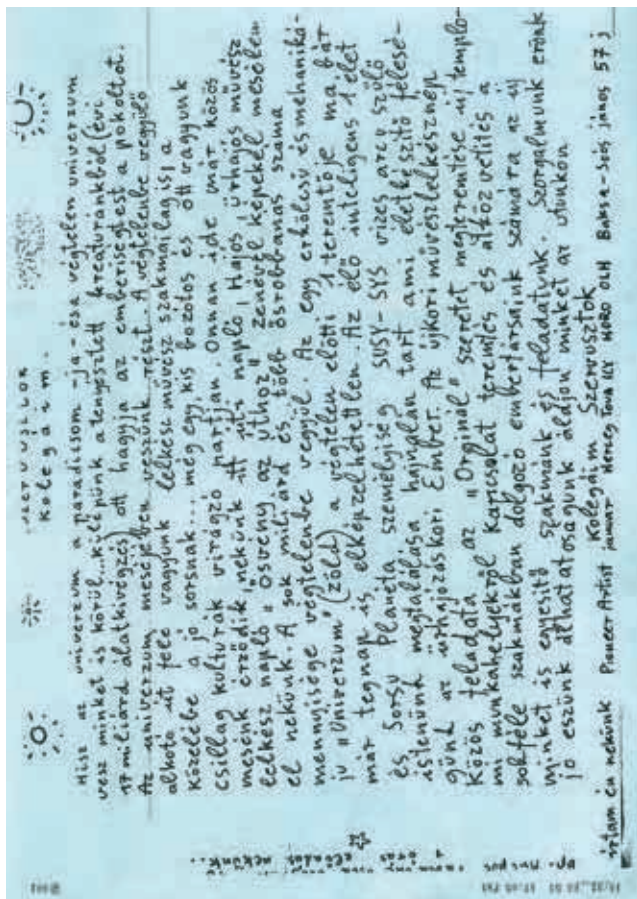 SZERVUSZTOK
Kolegáim.
Hisz az univerzum a paradicsom -ja- és a végtelen univerzum
vesz minket is körül... kilépünk a tenyésztett kreaturánkból (évi
17 miliárd álatkivégzés) ott hagyja az emberiség ezt a pokoltot.
Az univerzum meséjében veszünk részt. A végtelenbe vegyülő
alkotó út felé vagyunk lelkész művész szakmailag is, a
közelébe a jó sorsnak... még egy kis bozótos és ott vagyunk
csillag kulturák virágzó partján. Onnan ide már közös
mesénk érződik, nekünk itt mi napló, Hajós űrhajós művész
lelkész napló "Ösvény az úthoz" zenével képekel mesélem
el nekünk. A sok miliárd és több ősrobbanás száma
mennyisége végtelenbe vegyül. Az egy erkölcsű és mehaniká-
ju "Univerzum" (zöld) a végtelen előtti 1 teremtője ma bár
már tegnap is elképzelhetetlen. Az élő inteligens 1 élet
és Sorsu planéta személyiség SUSY-SYS vizes arcu szülő
istenünd megtalálása hajnalán tart ami életkészítő felesé-
günd az űrhajózáskori Ember. Az újkori művészlelkésznép
közös feladata az "Original" szeretet megteremtése uj templo-
mi munkahelyekről Kapcsolat teremtés és átközvetités a
sokféle szakmákban dolgozó embertársaink számára az uj
minket is egyesitő szakmánk és feladatunk. Szorgalmunk erőnk
jó eszünk álhatatoságunk áldjon minket az utunkon
Kolegáim Szervusztok
irtam én nekünk Pioneer Artist Herceg NORO OLH Baksa-Soós János 57 J
1 órás előadás nekünk..